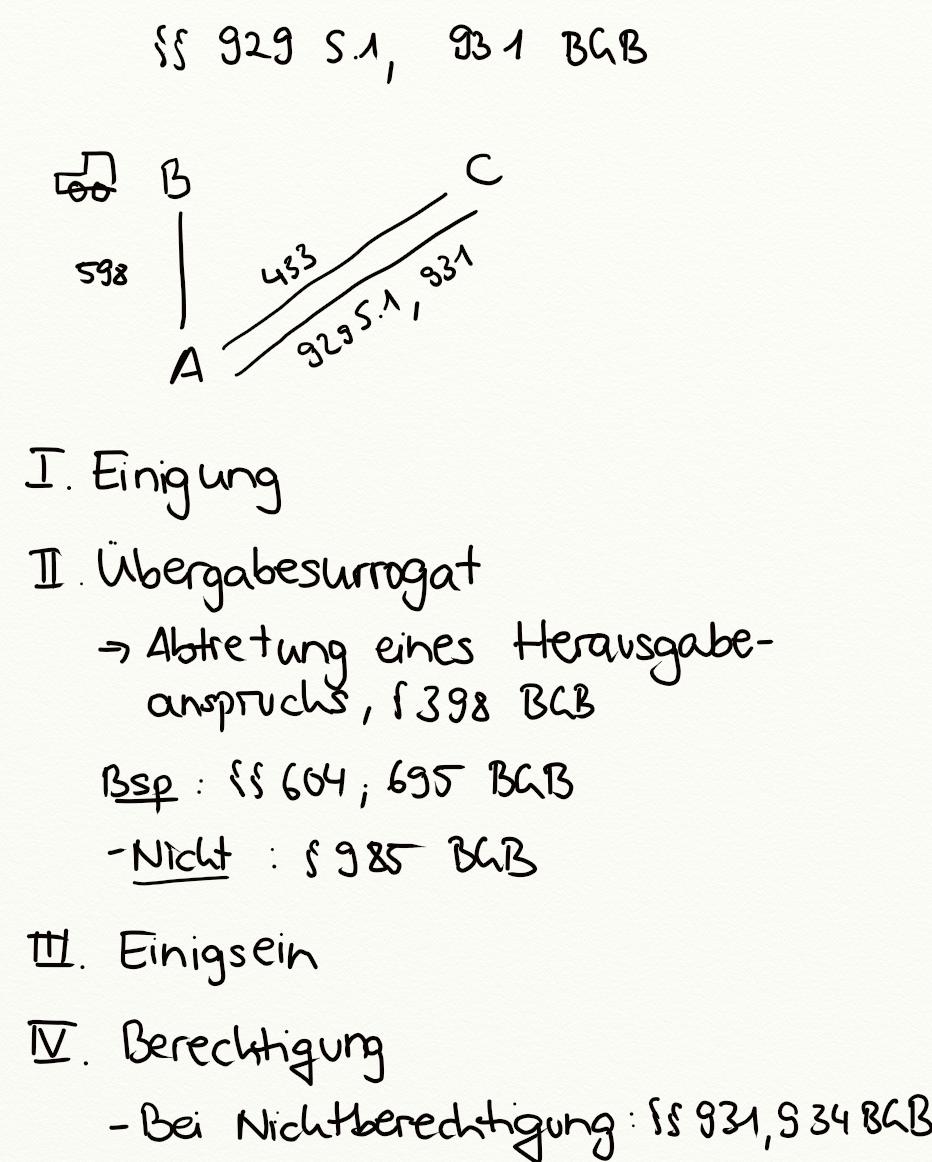 §§ 929 S.1, 931 BGB
B C
598
433
929 S.1, 931
A
I. Einigung
II. Übergabesurrogat
→ Abtretung eines Herausgabe-
anspruchs, § 398 BGB
Bsp: §§ 604; 695 BGB
- Nicht: § 985 BGB
III. Einigsein
IV. Berechtigung
- Bei Nichtberechtigung: §§ 931, 934 BGB